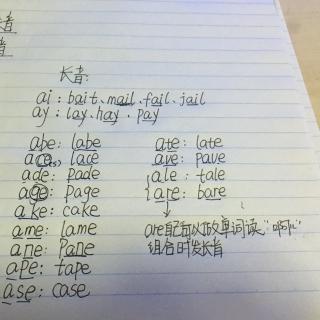 长音
音
长音:
ai: bait、mail、fail、jail
ay: lay、hay、pay
abe: labe
ace: lace
ade: pade
age: page
ake: cake
ame: lame
ane: pane
ape: tape
ase: case
ate: late
ave: pave
ale: tale
are: bare
are 可以做单词读“啊儿”
组合时发长音